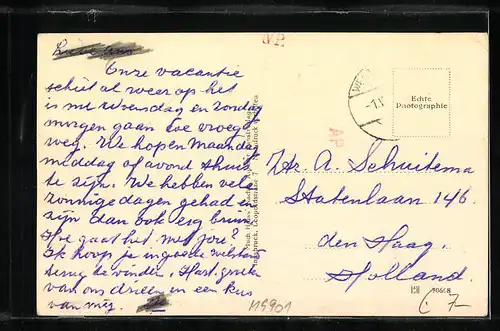 Onze vacantie
schiet al weer op het
is nu Woensdag en Zondag
morgen gaan we vroeg
weg. We hopen Maandag
middag of avond thuis
te zijn. We hebben vele
zonnige dagen gehad en
zijn dan ook erg bruin.
Hoe gaat het met jou?
Ik hoop je in goede welstand
terug te vinden. Hart. groeten
van ons drieën en een kus
van mij.
Echte
Photographie
AP
Zr. A. Schuitema
Statenlaan 146
den Haag.
Holland.
C 7-
MS901